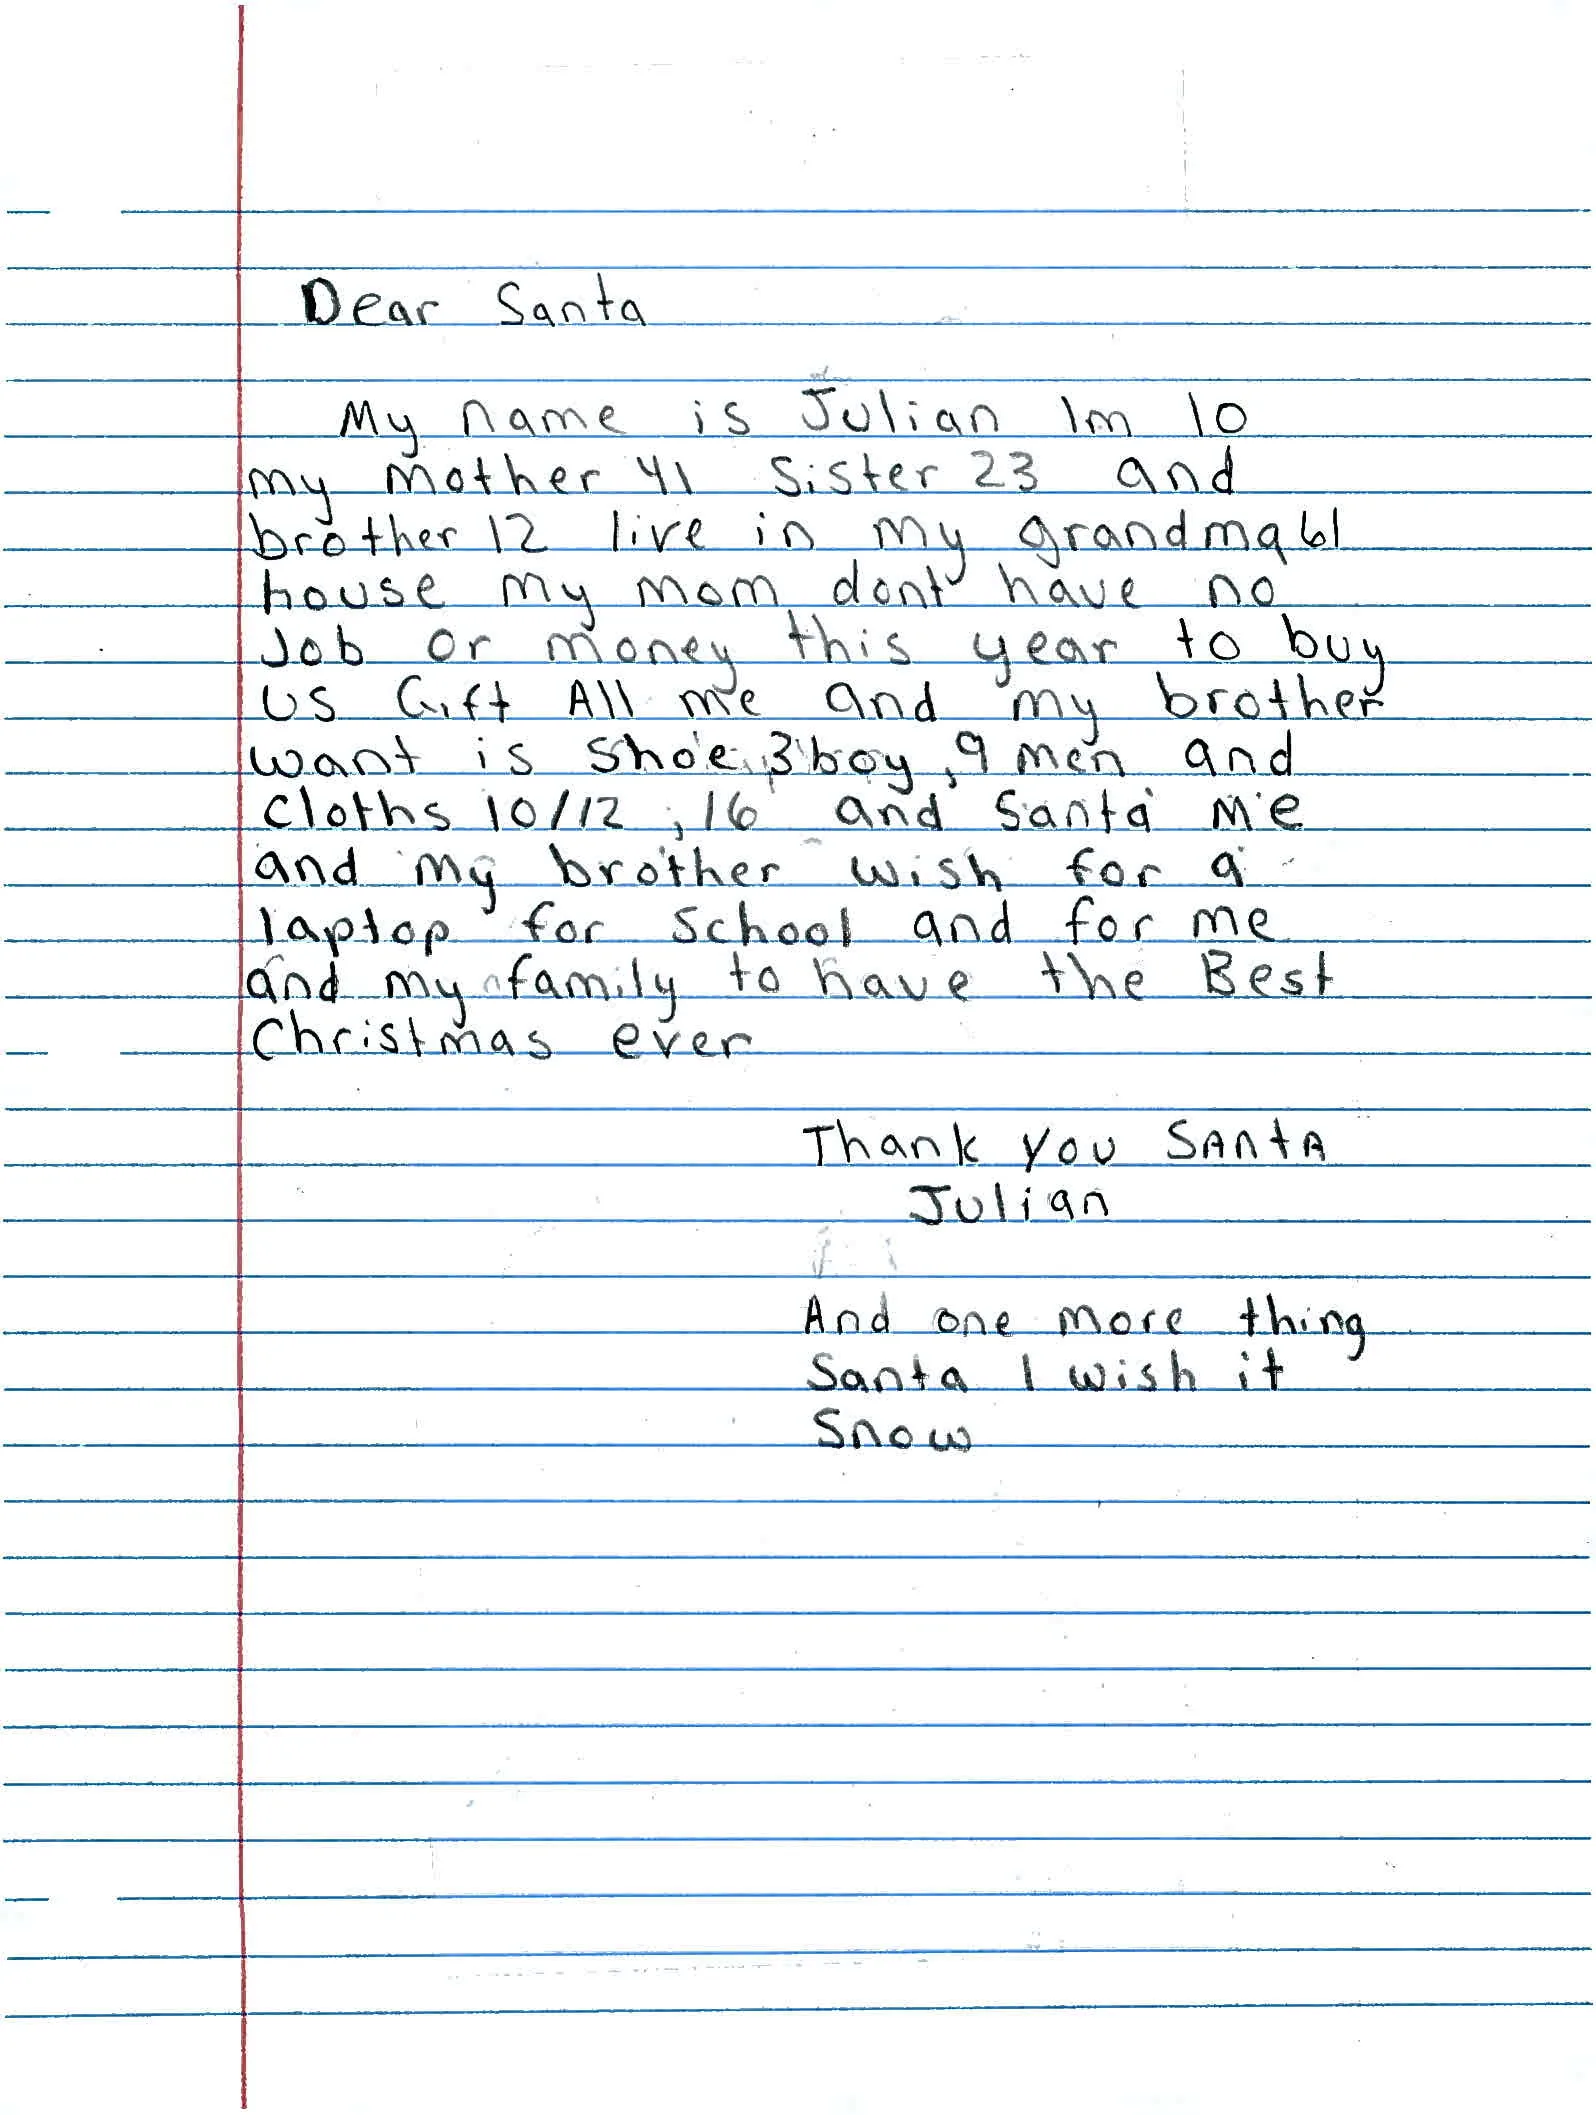 Dear Santa
My name is Julian Im 10
my mother 41 sister 23 and
brother 12 live in my grandma 61
house my mom dont have no
Job or money this year to buy
us Gift All me and my brother
want is shoe, 3 boy, 9 men and
cloths 10/12, 16 and Santa me
and my brother wish for a
laptop for school and for me
and my family to have the Best
Christmas ever
Thank you SAntA
Julian
And one more thing
Santa I wish it
Snow